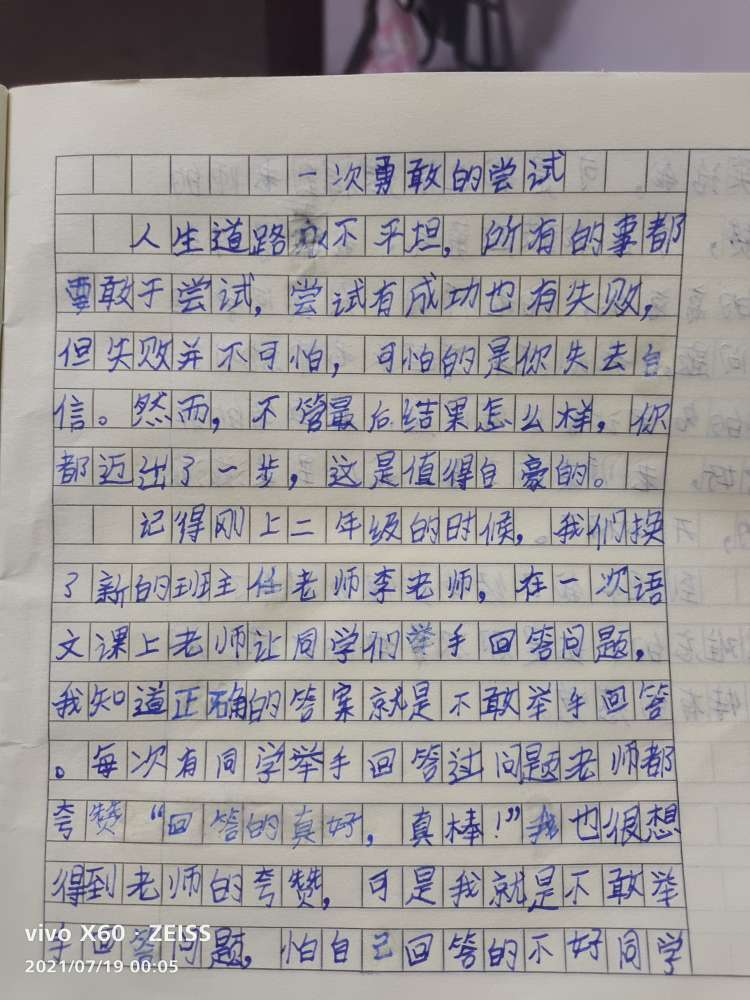 一次勇敢的尝试
人生道路从不平坦，所有的事都
要敢于尝试，尝试有成功也有失败，
但失败并不可怕，可怕的是你失去自
信。然而，不管最后结果怎么样，你
都迈出了一步，这是值得自豪的。
记得刚上二年级的时候，。我们换
了新的班主任老师李老师，在一次语
文课上老师让同学们举手回答问题，
我知道正确的答案就是不敢举手回答
。每次有同学举手回答过问题老师都
夸赞“回答的真好，真棒！”我也很想
得到老师的夸赞，可是我就是不敢举
手回答问题，怕自己回答的不好同学
vivo X60 · ZEISS
2021/07/19 00:05